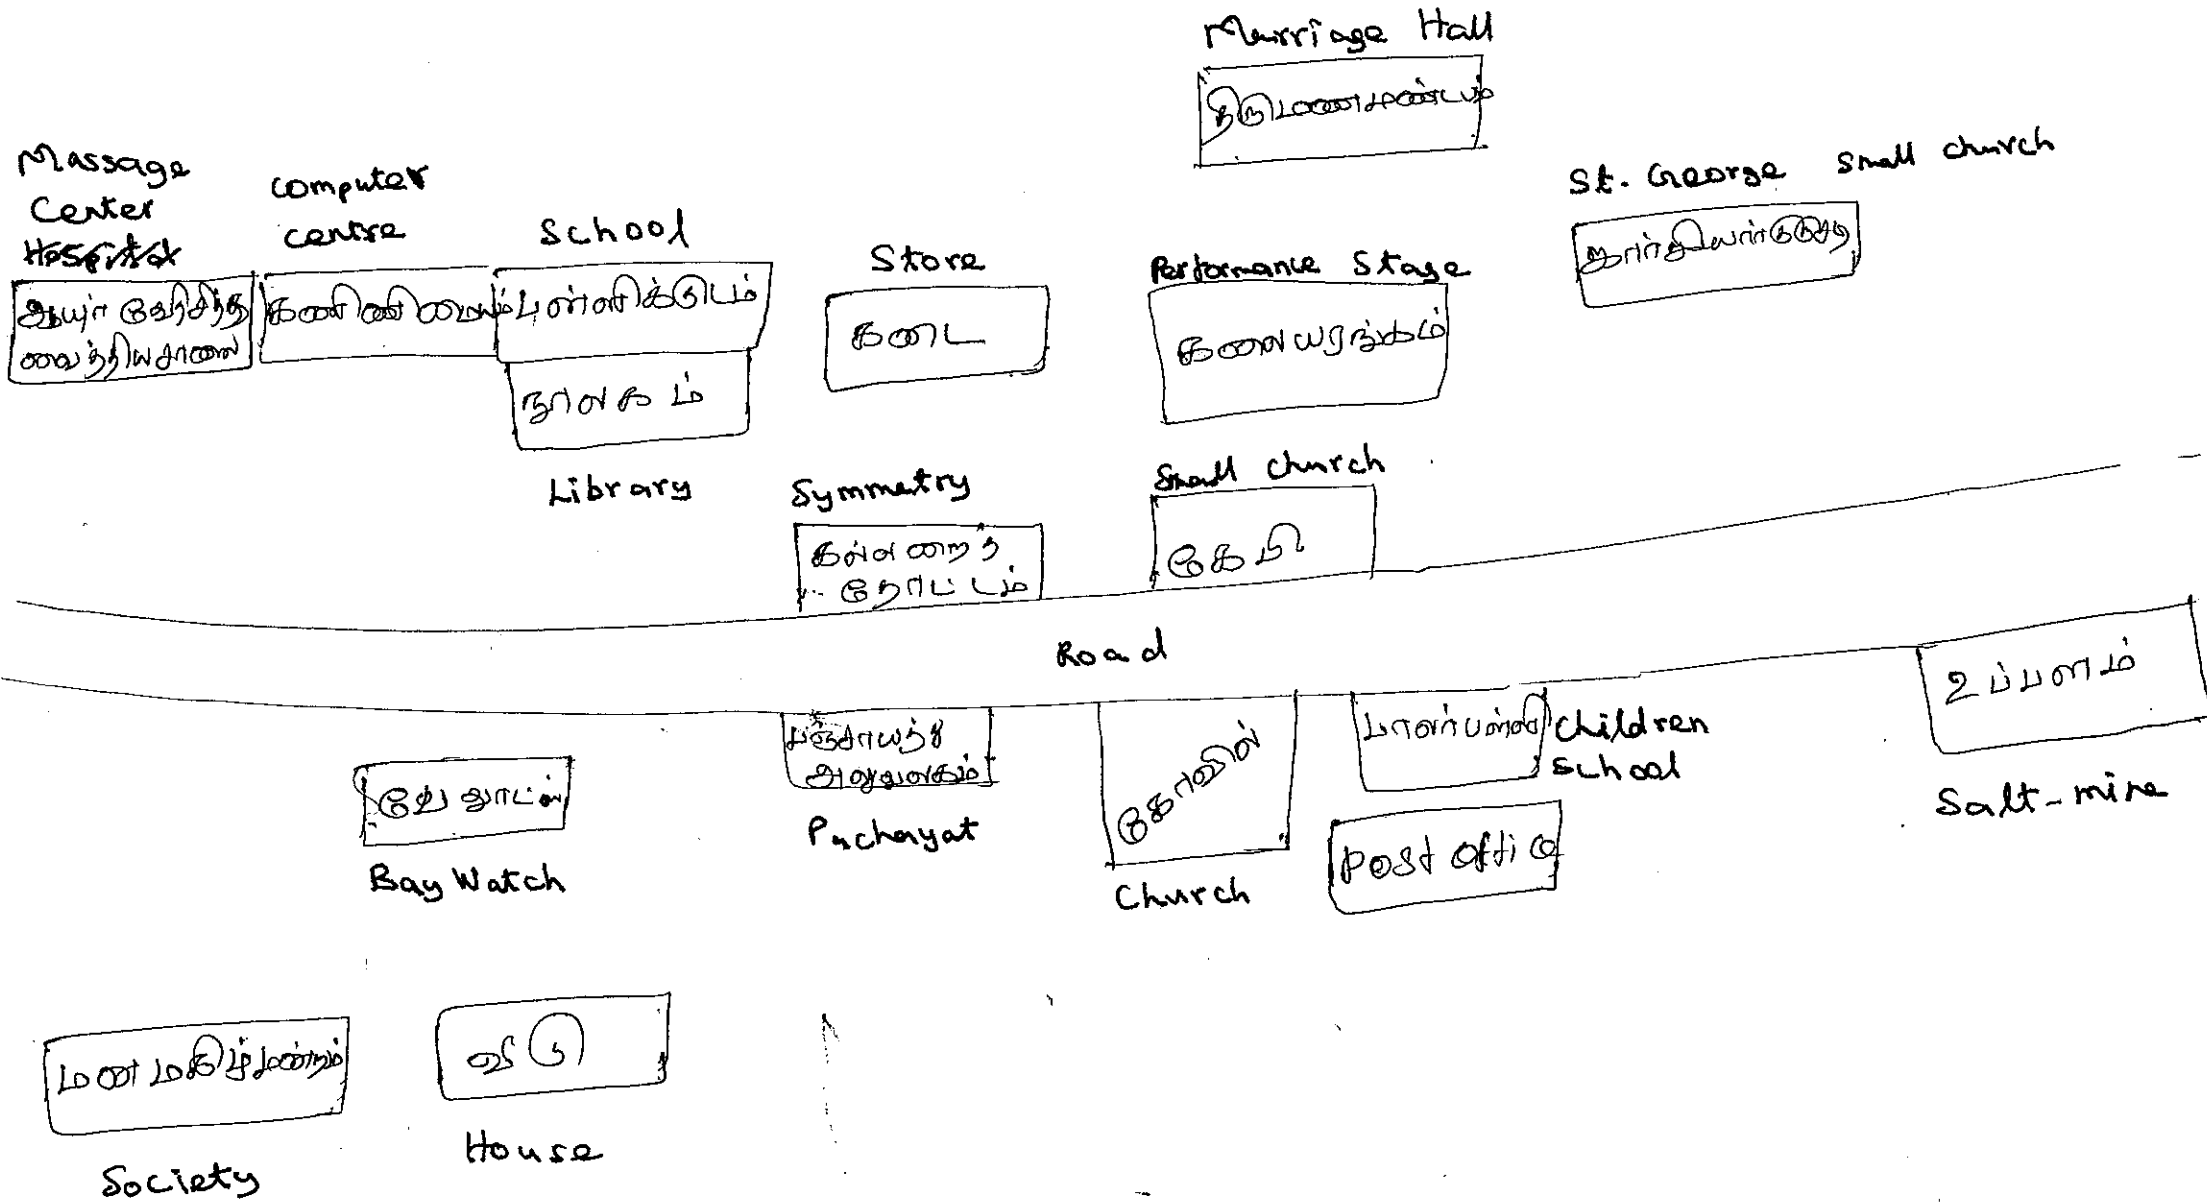 Marriage Hall
திருமணமண்டபம்
Massage
Center
Hospital
ஆயுர்வேதசித்த
வைத்தியசாலை
computer
centre
கணினிமையம்
School
பள்ளிக்கூடம்
நூலகம்
Library
Store
கடை
Performance Stage
கலையரங்கம்
St. George Small church
Symmetry
கல்லறைத்
தோட்டம்
Small church
கேபி
Road
பஞ்சாயத்து
அலுவலகம்
Puchayat
கோவில்
Church
பாலர்பள்ளி
Children
School
Post Office
உப்பளம்
Salt-mine
பேவாட்ஸ்
Bay Watch
மனமகிழ்மன்றம்
Society
வீடு
House